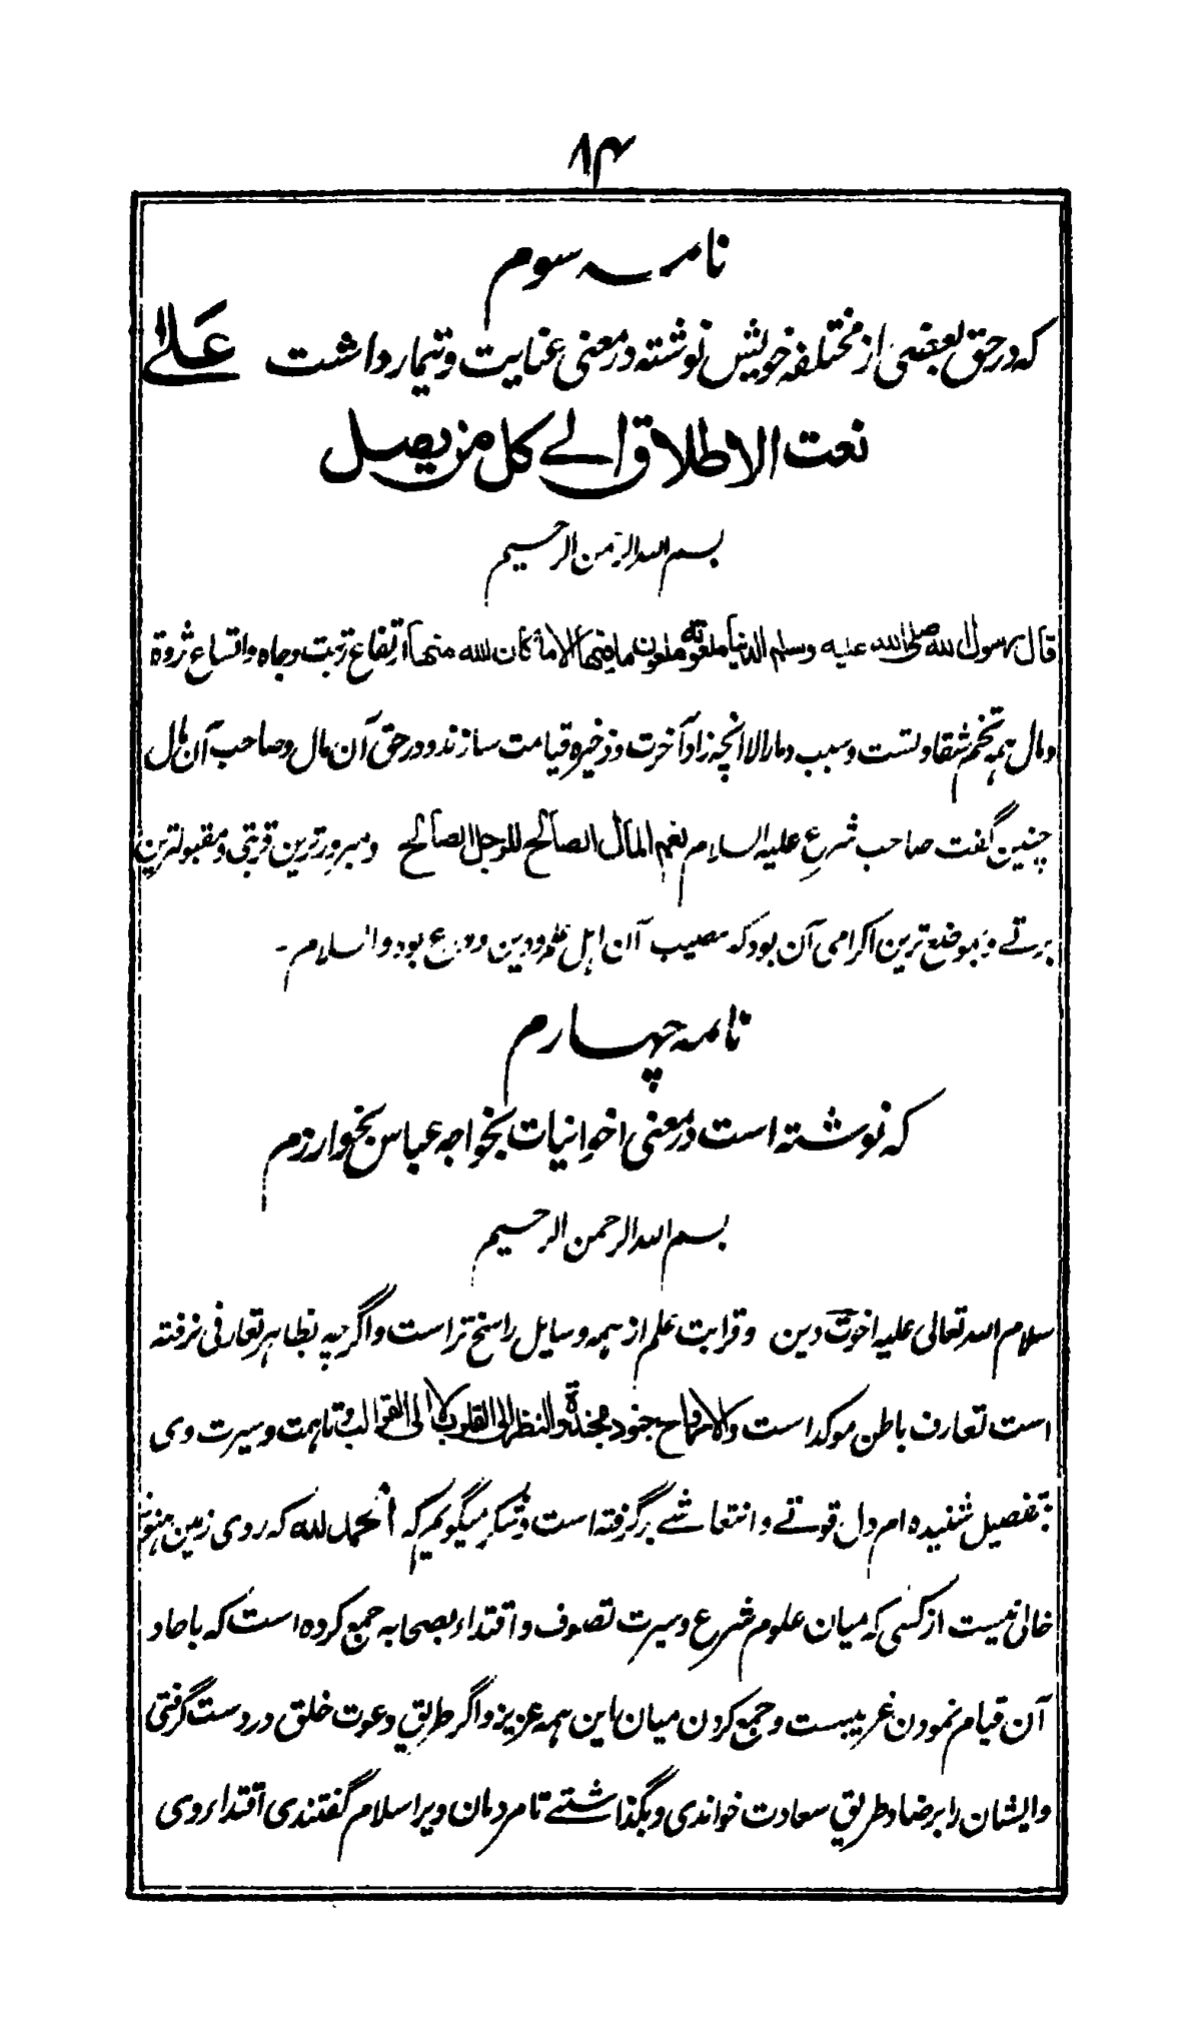 ۸۴
نامه سوم
که در حق بعضی از مختلفه خویش نوشته در معنی عنایت و تیمار داشت علے
نعت الاطلاق الے کل من یصل
بسم الله الرحمن الرحیم
قال رسول الله صلی الله علیه وسلم الدنیا ملعونة ملعون ما فیها الا ما کان لله منها ارتفاع رتبت و جاه و اتساع ثروة
و مال همه تخم شقاوتست و سبب دمار الا انچه زاد آخرت و ذخیره قیامت سازند و در حق آن مال و صاحب آن مال
چنین گفت صاحب شرع علیه السلام نعم المال الصالح للرجل الصالح و مبرورترین قربتی و مقبولترین
برتے و بموضع ترین اکرامی آن بود که مصیب آن اهل علم و دین و ورع بود والسلام -
نامه چهارم
که نوشته است در معنی اخوانیات بخواجه عباس بخوارزم
بسم الله الرحمن الرحیم
سلام الله تعالی علیه اخوت دین و قرابت علم از همه وسایل راسخ تر است و اگرچه بظاهر تعارفی نرفته
است تعارف باطن موکد است والارواح جنود مجندة والنظر الی القلوب لا الی القوالب و تا همت و سیرت وی
بتفصیل شنیده ام دل قوتے و انتعاشے برگرفته است و شکر میگویم که الحمد لله که روی زمین هنوز
خالی نیست از کسی که میان علوم شرع و سیرت تصوف و اقتداء بصحابه جمع کرده است که باحاد
آن قیام نمودن غریبست و جمع کردن میان این همه عزیز و اگر طریق دعوت خلق در دست گرفتی
و ایشان را برضاد طریق سعادت خواندی و بگذاشتے تا مردمان ویرا سلام گفتندی اقتدا بروی